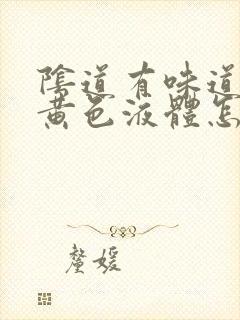 陰道有味道
黃色液體怎
釐媛